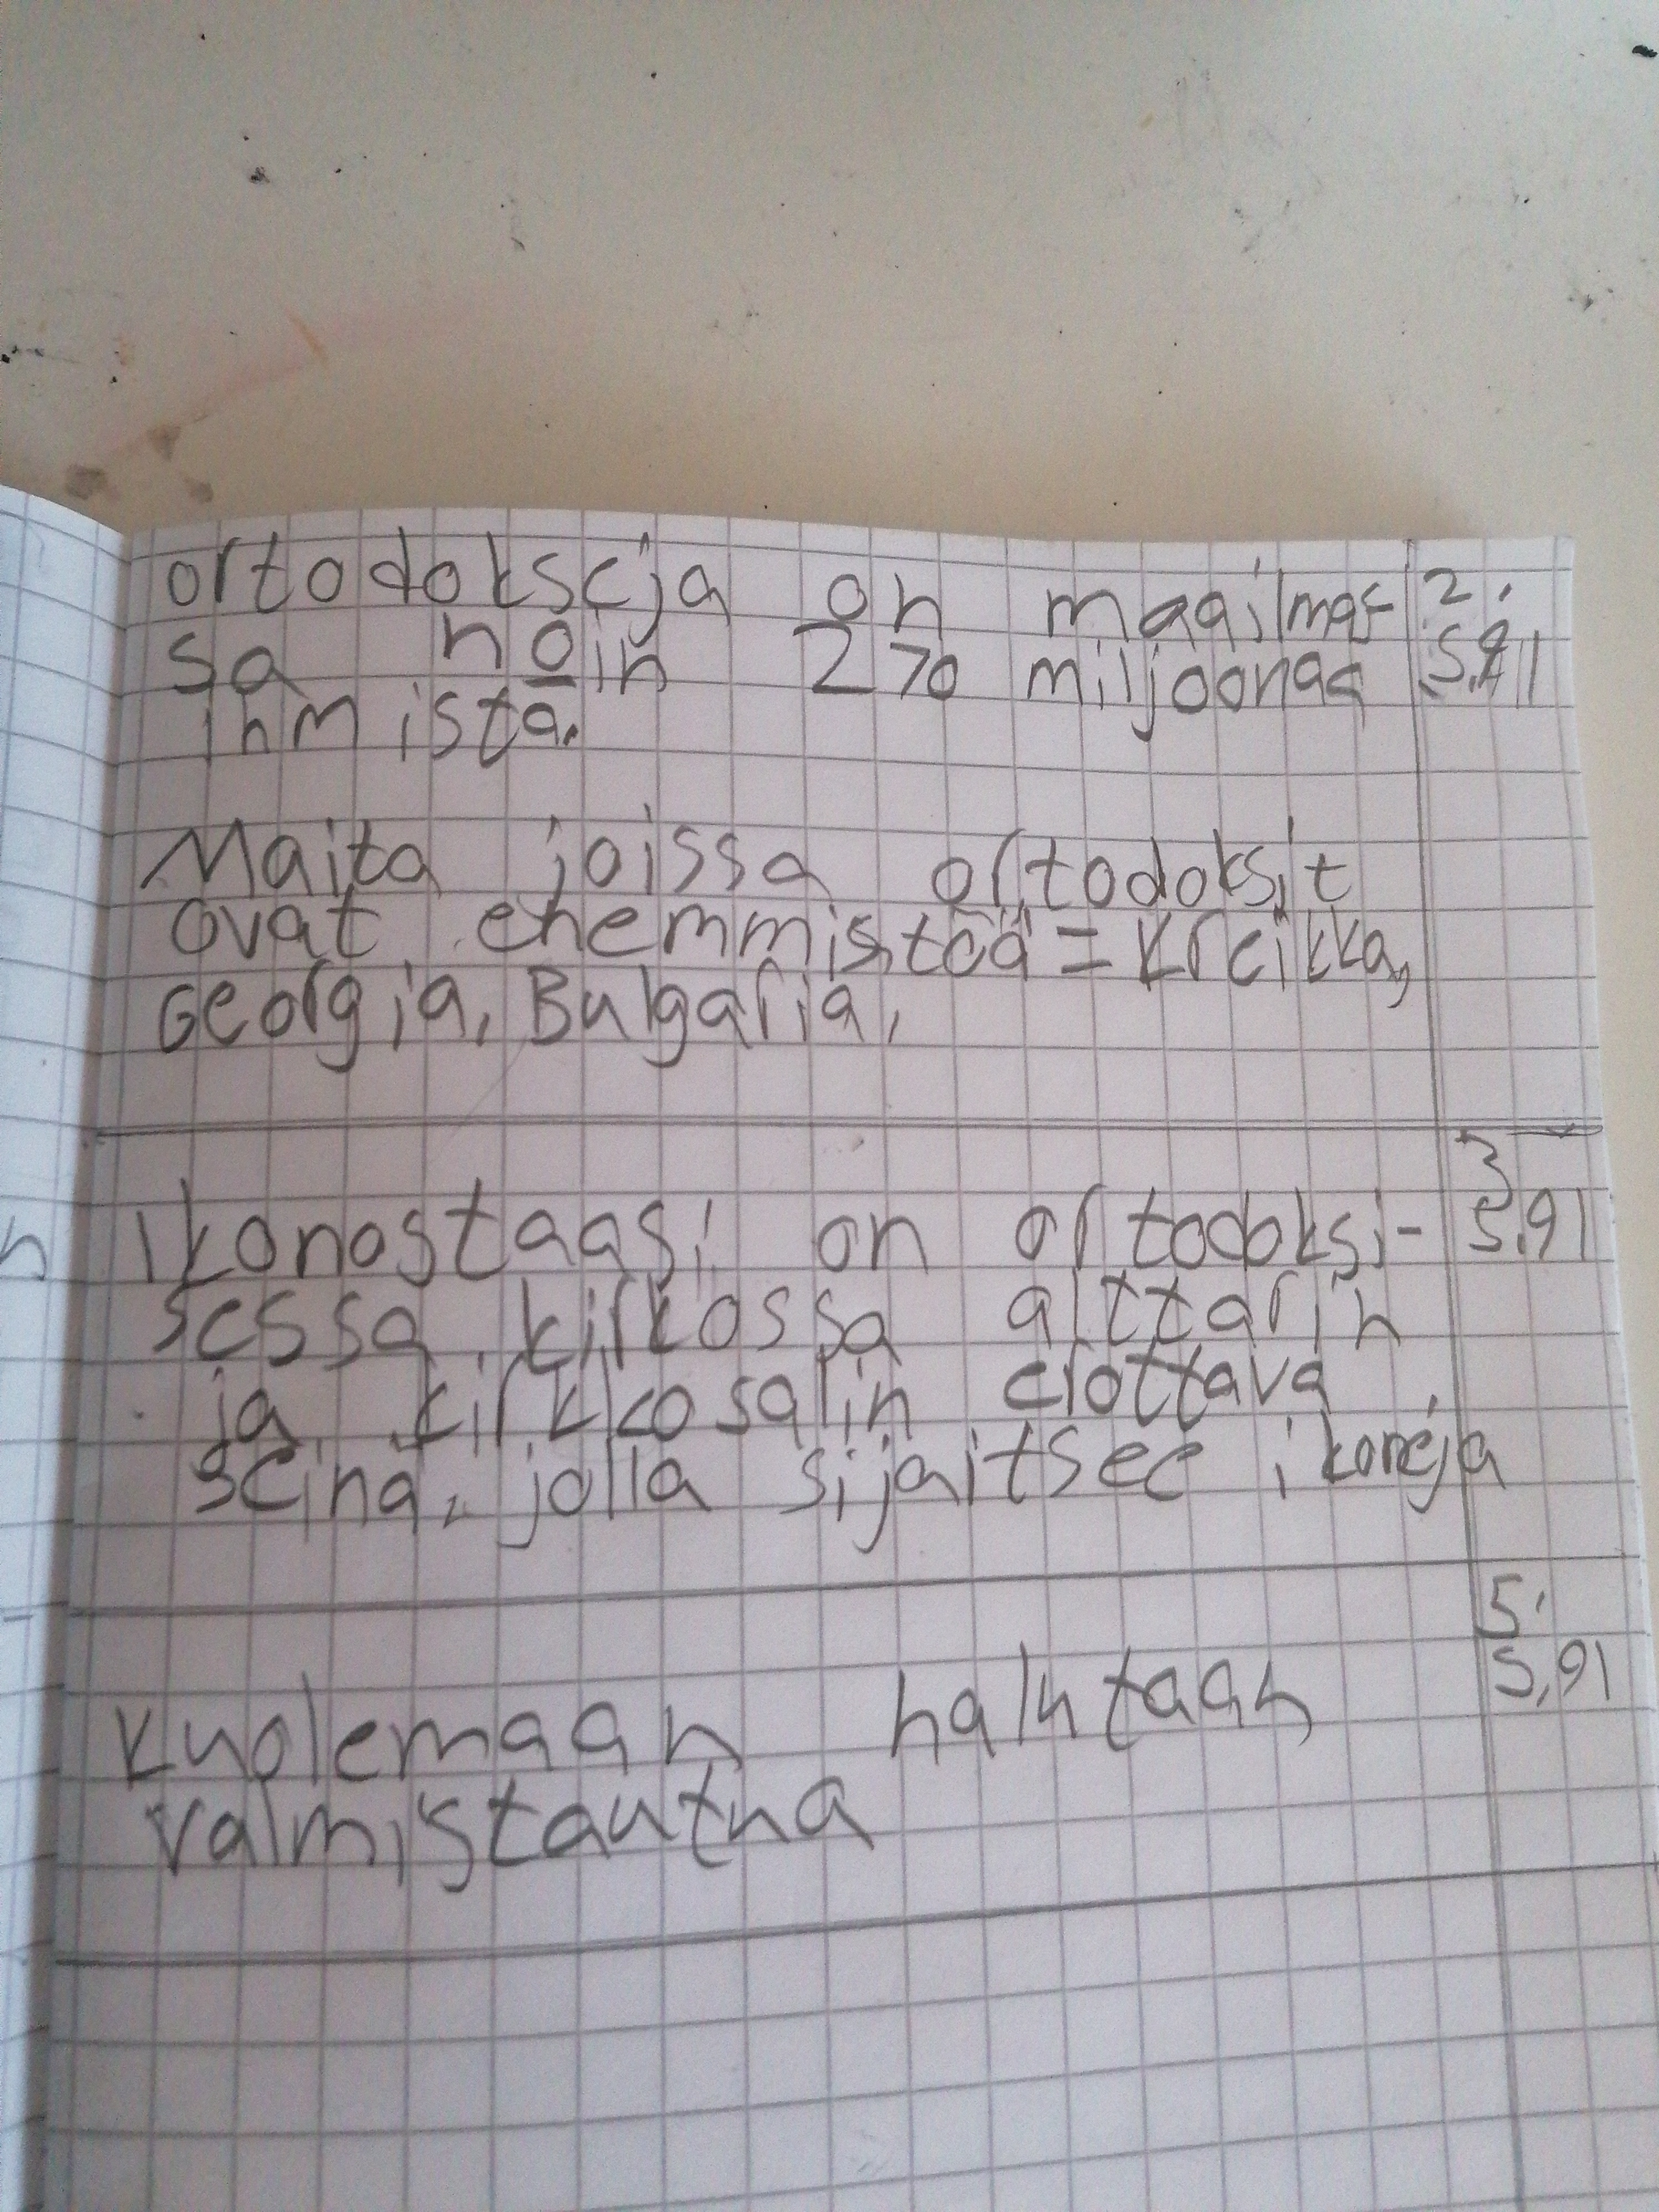 ortodokseja on maailmas- 2.
sa noin 270 miljoonaa s.91
ihmistä.
Maita joissa ortodoksit
ovat enemmistöä = Kreikka,
Georgia, Bulgaria,
3
Ikonostaasi on ortodoksi- s.91
sessa kirkossa alttarin
ja kirkkosalin erottava
seinä, jolla sijaitsee ikoneja
5.
s.91
Kuolemaan halutaan
valmistautua